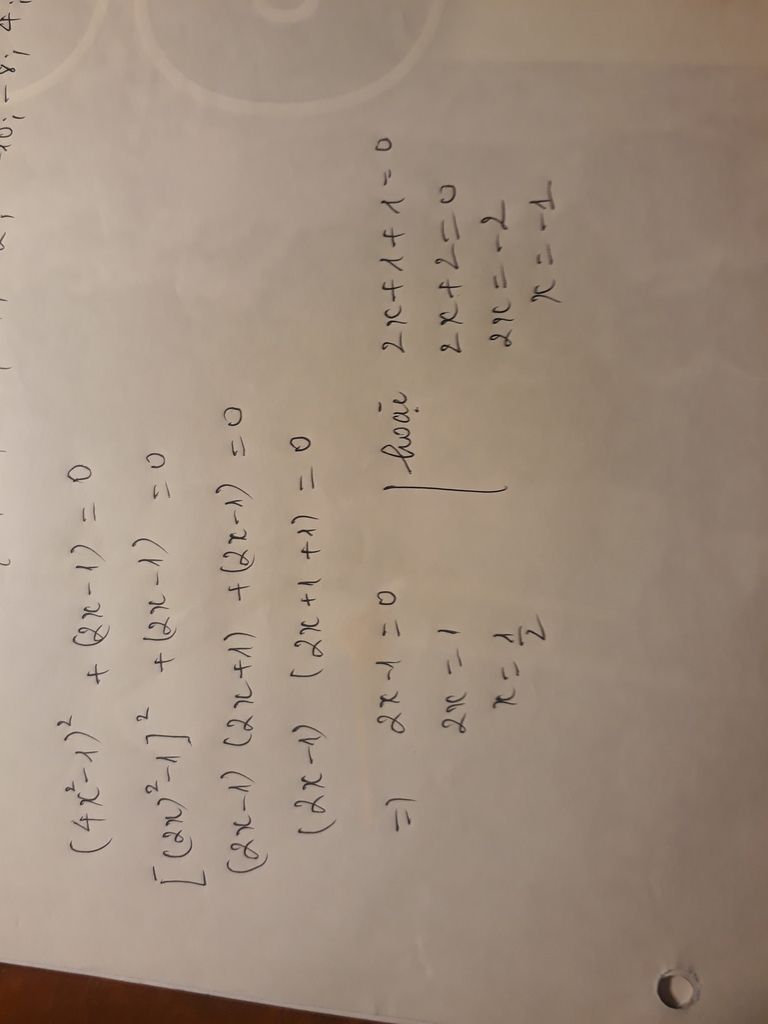 (4x²-1)² + (2x-1) = 0
[(2x)²-1]² + (2x-1) = 0
(2x-1) (2x+1) + (2x-1) = 0
(2x-1) (2x+1+1) = 0
=> 2x-1 = 0 hoặc 2x+1+1 = 0
2x = 1 2x+2 = 0
x = 1/2 2x = -2
x = -1